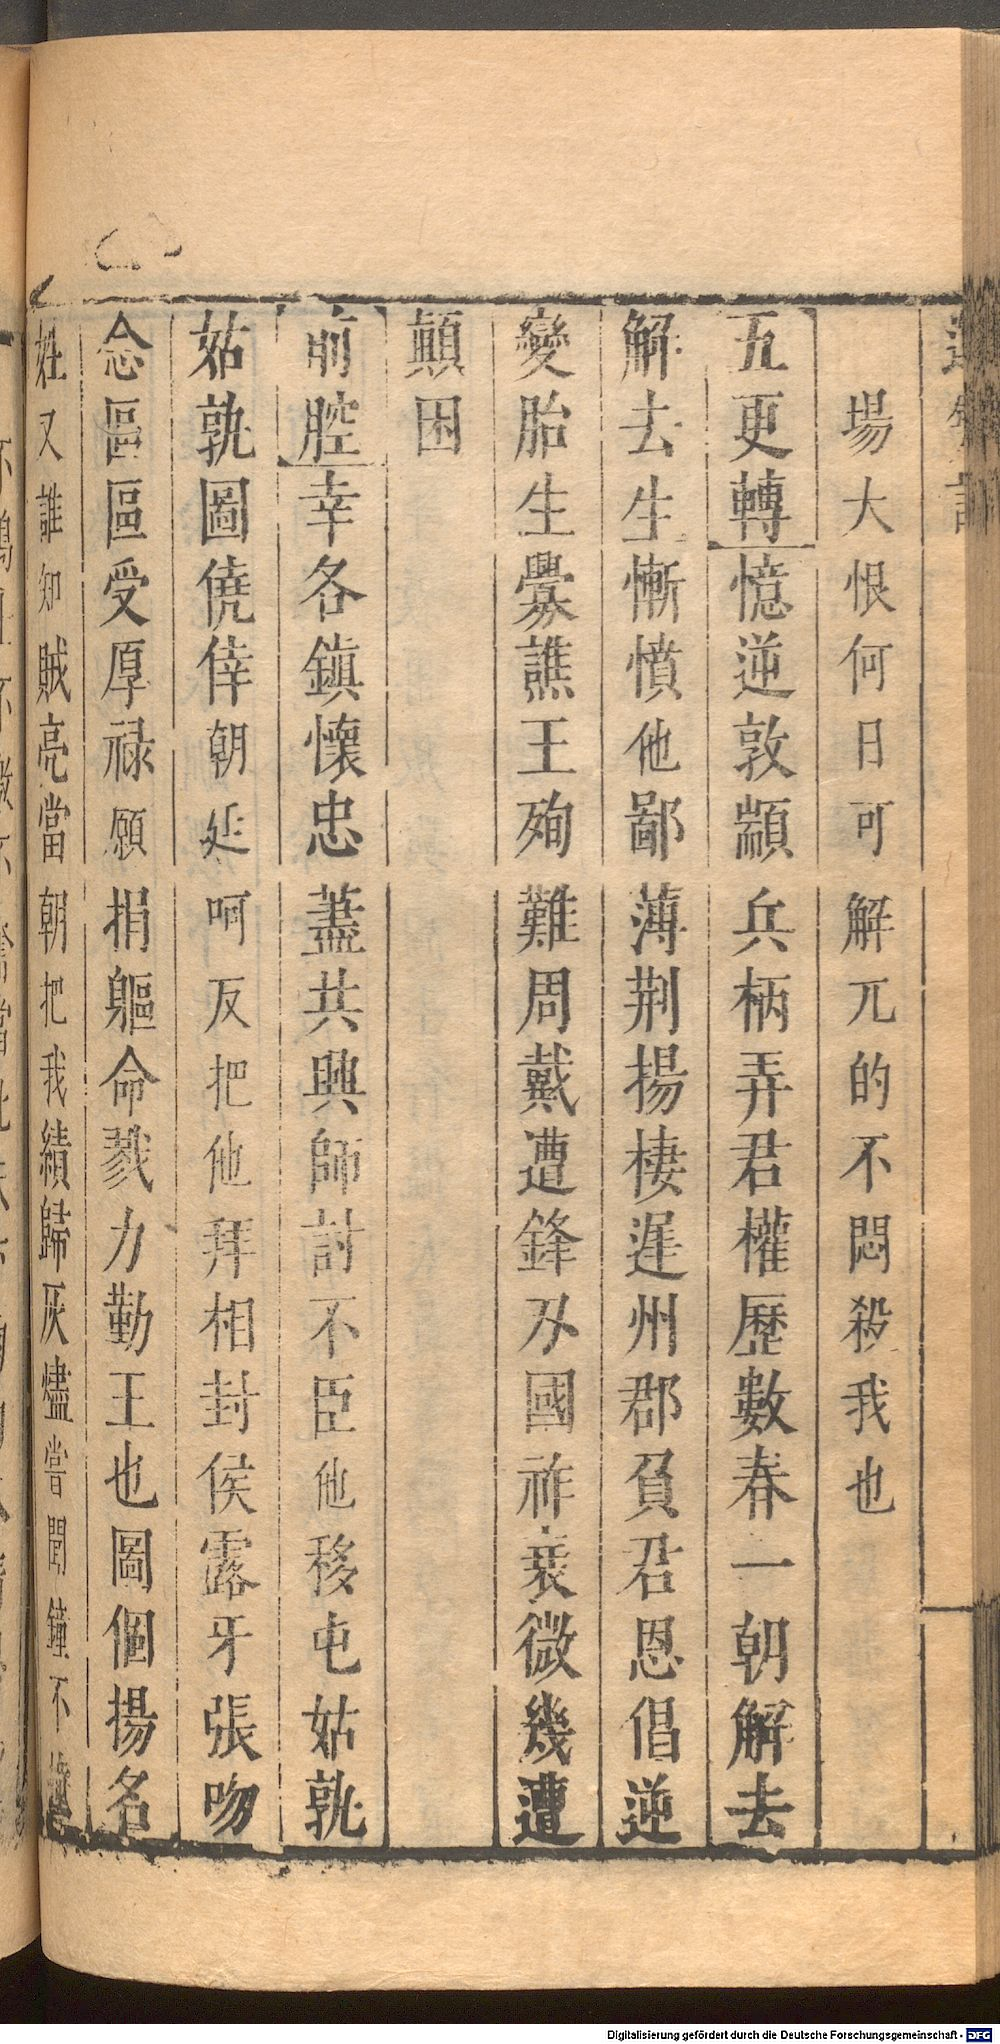 場大恨何日可解兀的不悶殺我也
五更轉憶逆敦顓兵柄弄君權歷數春一朝解去
解去生慚憤他鄙薄荆揚棲遲州郡負君恩倡逆
變胎生舋譙王殉難周戴遭鋒刄國祚衰微幾遭
顛困
前腔幸各鎮懷忠藎共興師討不臣他移屯姑孰
姑孰圖僥倖朝廷呵反把他拜相封侯露牙張吻
念區區受厚禄願捐軀命戮力勤王也圖個揚名
姓又誰知賊亮當朝把我績歸灰燼嘗聞鐘不
Digitalisierung gefördert durch die Deutsche Forschungsgemeinschaft - DFG